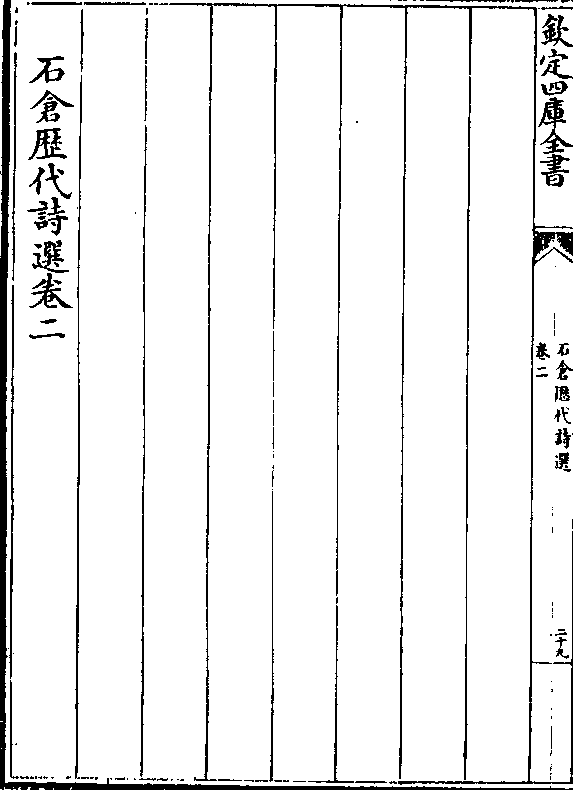 欽定四庫全書
石倉歴代詩選
卷二
二十九
石倉歴代詩選卷二